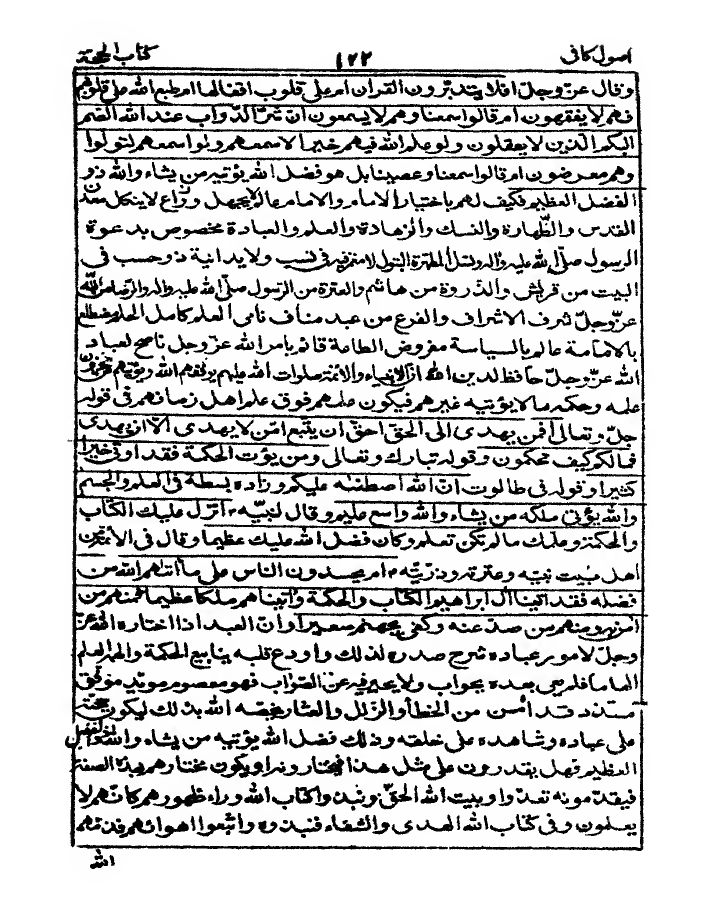 اصول کافی ١٢٢ کتاب الحجة
وقال عزّ وجلّ افلا یتدبّرون القرآن ام علی قلوب اقفالها ام طبع الله علی قلوبهم
فهم لا یفقهون ام قالوا سمعنا وهم لا یسمعون انّ شرّ الدّواب عند الله الصّم
البکم الّذین لا یعقلون ولو علم الله فیهم خیرا لاسمعهم ولو اسمعهم لتولّوا
وهم معرضون ام قالوا سمعنا وعصینا بل هو فضل الله یؤتیه من یشاء والله ذو
الفضل العظیم فکیف لهم باختیار الامام والامام عالم لا یجهل وراع لا ینکل معدن
القدس والطّهارة والنسک والزهادة والعلم والعبادة مخصوص بدعوة
الرسول صلّی الله علیه وآله ونسل المطهّرة البتول لا مغمز فیه فی نسب ولا یدانیه ذو حسب فی
البیت من قریش والذّروة من هاشم والعترة من الرسول صلّی الله علیه وآله والرضا من الله
عزّ وجلّ شرف الاشراف والفرع من عبد مناف نامی العلم کامل الحلم مضطلع
بالامامة عالم بالسیاسة مفروض الطاعة قائم بامر الله عزّ وجلّ ناصح لعباد
الله عزّ وجلّ حافظ لدین الله انّ الانبیاء والائمّة صلوات الله علیهم یوفّقهم الله ویؤتیهم من مخزون
علمه وحکمه ما لا یؤتیه غیرهم فیکون علمهم فوق علم اهل زمانهم فی قوله
جلّ وتعالی أفمن یهدی الی الحقّ احقّ ان یتّبع امّن لا یهدّی الّا ان یهدی
فما لکم کیف تحکمون وقوله تبارک وتعالی ومن یؤت الحکمة فقد اوتی خیرا
کثیرا وقوله فی طالوت انّ الله اصطفیه علیکم وزاده بسطة فی العلم والجسم
والله یؤتی ملکه من یشاء والله واسع علیم وقال لنبیّه ص انزل علیک الکتاب
والحکمة وعلّمک ما لم تکن تعلم وکان فضل الله علیک عظیما وقال فی الأئمّة من
اهل بیت نبیّه وعترته وذرّیّته ع ام یحسدون الناس علی ما آتیهم الله من
فضله فقد آتینا آل ابراهیم الکتاب والحکمة وآتیناهم ملکا عظیما فمنهم من
آمن به ومنهم من صدّ عنه وکفی بجهنّم سعیرا وانّ العبد اذا اختاره الله عزّ
وجلّ لامور عباده شرح صدره لذلک واودع قلبه ینابیع الحکمة والهمه العلم
الهاما فلم یعی بعده بجواب ولا یحیر فیه عن الصّواب فهو معصوم مؤیّد موفّق
مسدّد قد أمن من الخطأ والزّلل والعثار یخصّه الله بذلک لیکون حجّته
علی عباده وشاهده علی خلقه وذلک فضل الله یؤتیه من یشاء والله ذو الفضل
العظیم فهل یقدرون علی مثل هذا فیختارونه او یکون مختارهم بهذه الصفة
فیقدّمونه تعدّوا وبیت الله الحقّ ونبذوا کتاب الله وراء ظهورهم کانّهم لا
یعلمون وفی کتاب الله الهدی والشفاء فنبذوه واتّبعوا اهوائهم فذمّهم
الله